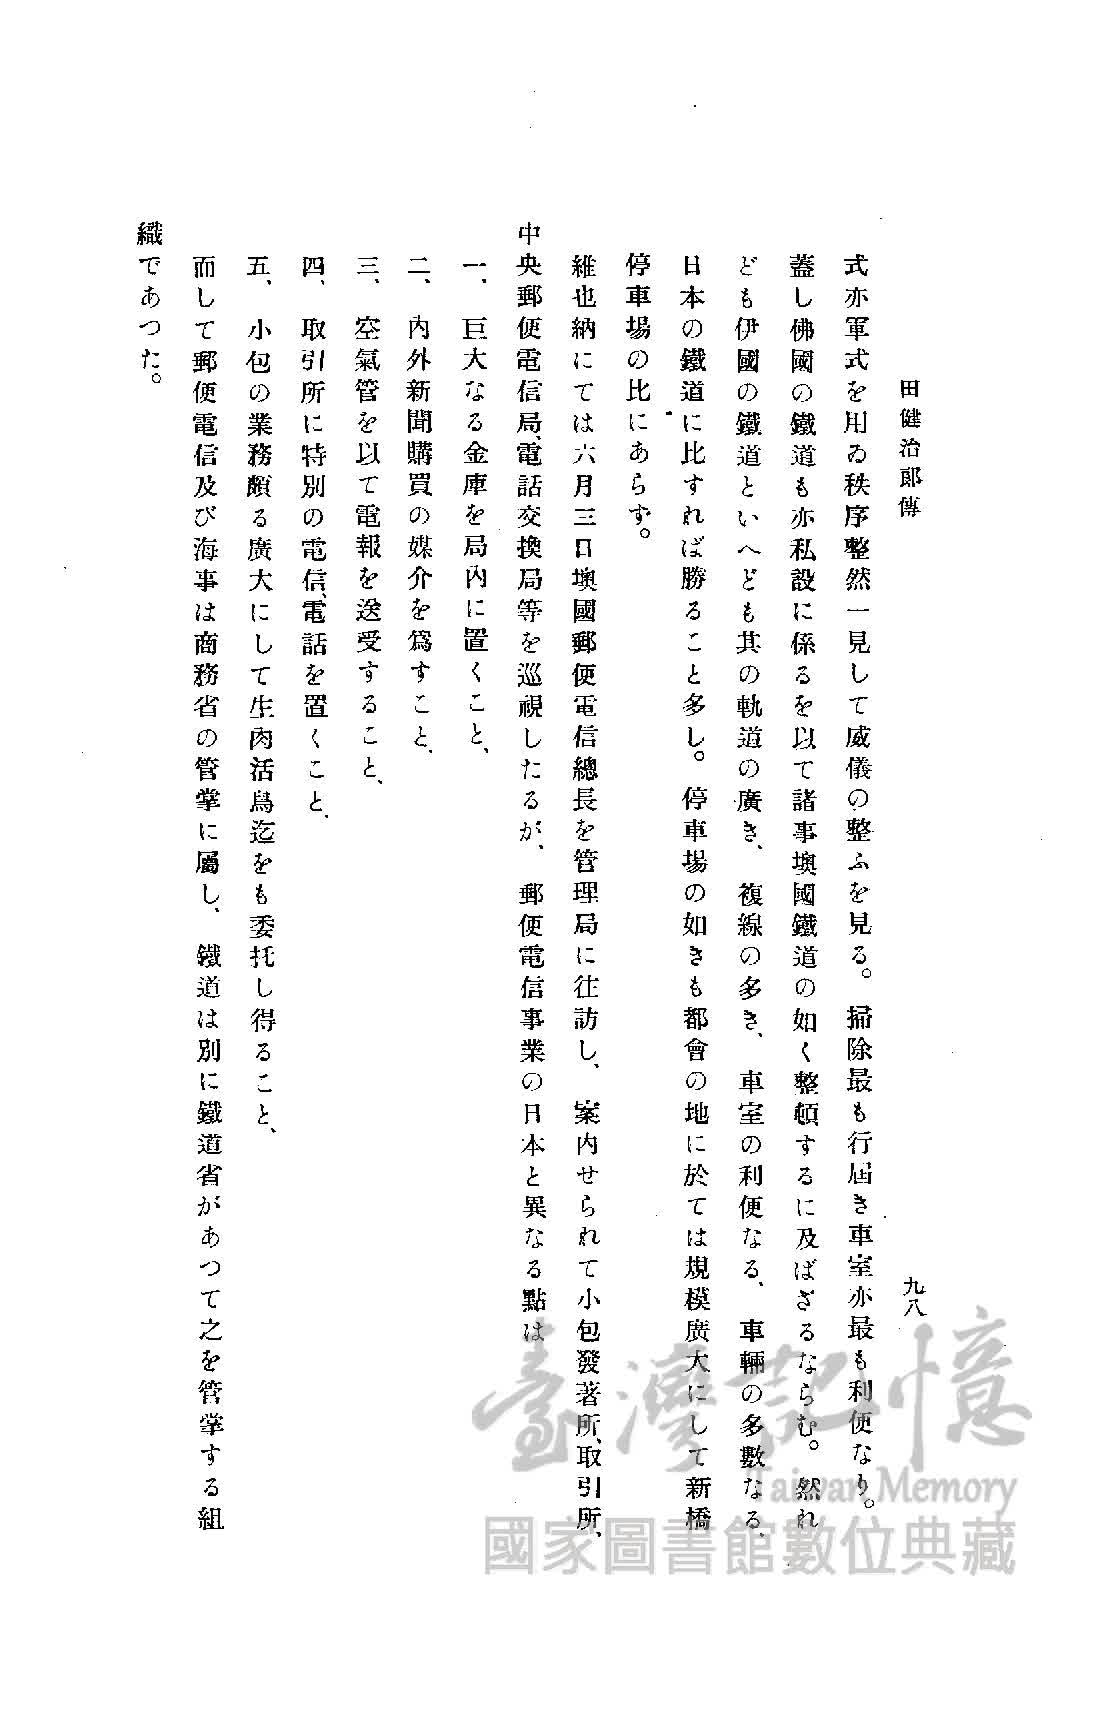 田健治郎傳
九八
式亦軍式を用ゐ秩序整然一見して威儀の整ふを見る。掃除最も行屆き車室亦最も利便なり。
蓋し佛國の鐵道も亦私設に係るを以て諸事墺國鐵道の如く整頓するに及ばざるならむ。然れ
ども伊國の鐵道といへども其の軌道の廣き、複線の多き、車室の利便なる、車輛の多數なる、
日本の鐵道に比すれば勝ること多し。停車場の如きも都會の地に於ては規模廣大にして新橋
停車場の比にあらず。
維也納にては六月三日墺國郵便電信總長を管理局に往訪し、案内せられて小包發著所、取引所、
中央郵便電信局、電話交換局等を巡視したるが、郵便電信事業の日本と異なる點は
一、巨大なる金庫を局内に置くこと、
二、内外新聞購買の媒介を爲すこと、
三、空氣管を以て電報を送受すること、
四、取引所に特別の電信、電話を置くこと、
五、小包の業務頗る廣大にして生肉活鳥迄をも委托し得ること、
而して郵便電信及び海事は商務省の管掌に屬し、鐵道は別に鐵道省があつて之を管掌する組
織であつた。
臺灣記憶
Taiwan Memory
國家圖書館數位典藏